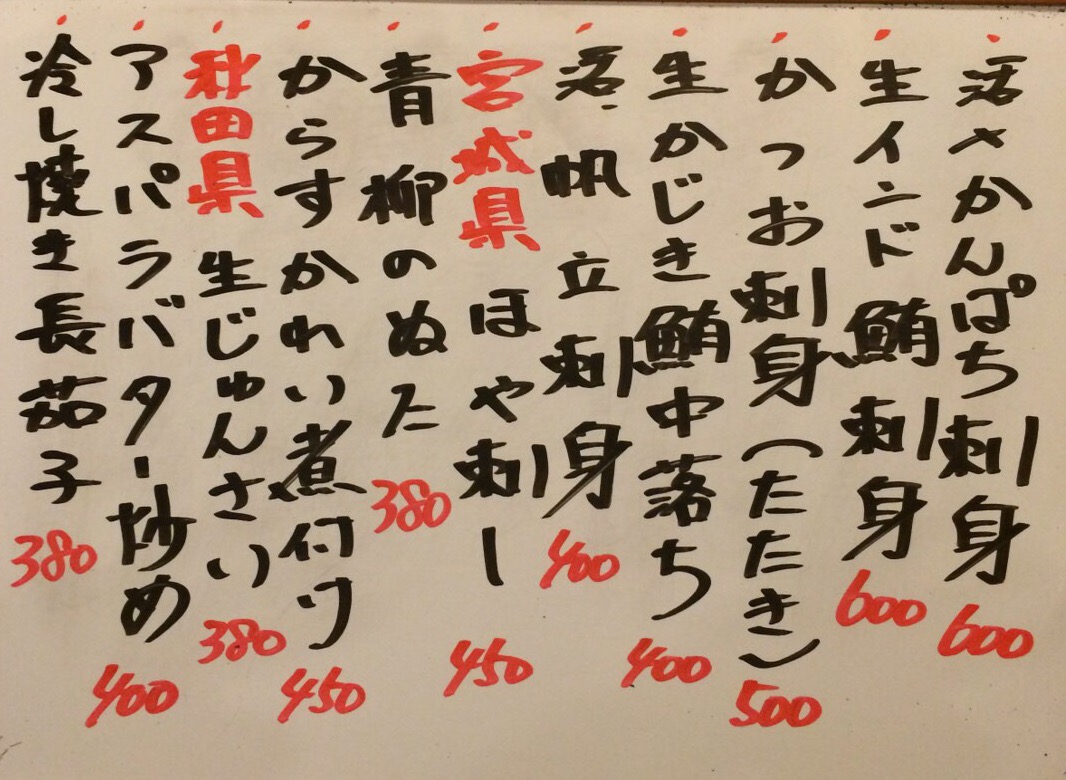 活〆かんぱち刺身 600
生インド鮪刺身 600
かつお刺身(たたき) 500
生かじき鮪中落ち 400
活帆立刺身 400
宮城県 ほや刺し 450
青柳のぬた 380
からすかれい煮付け 450
秋田県 生じゅんさい 380
アスパラバター炒め 400
冷し焼き長茄子 380